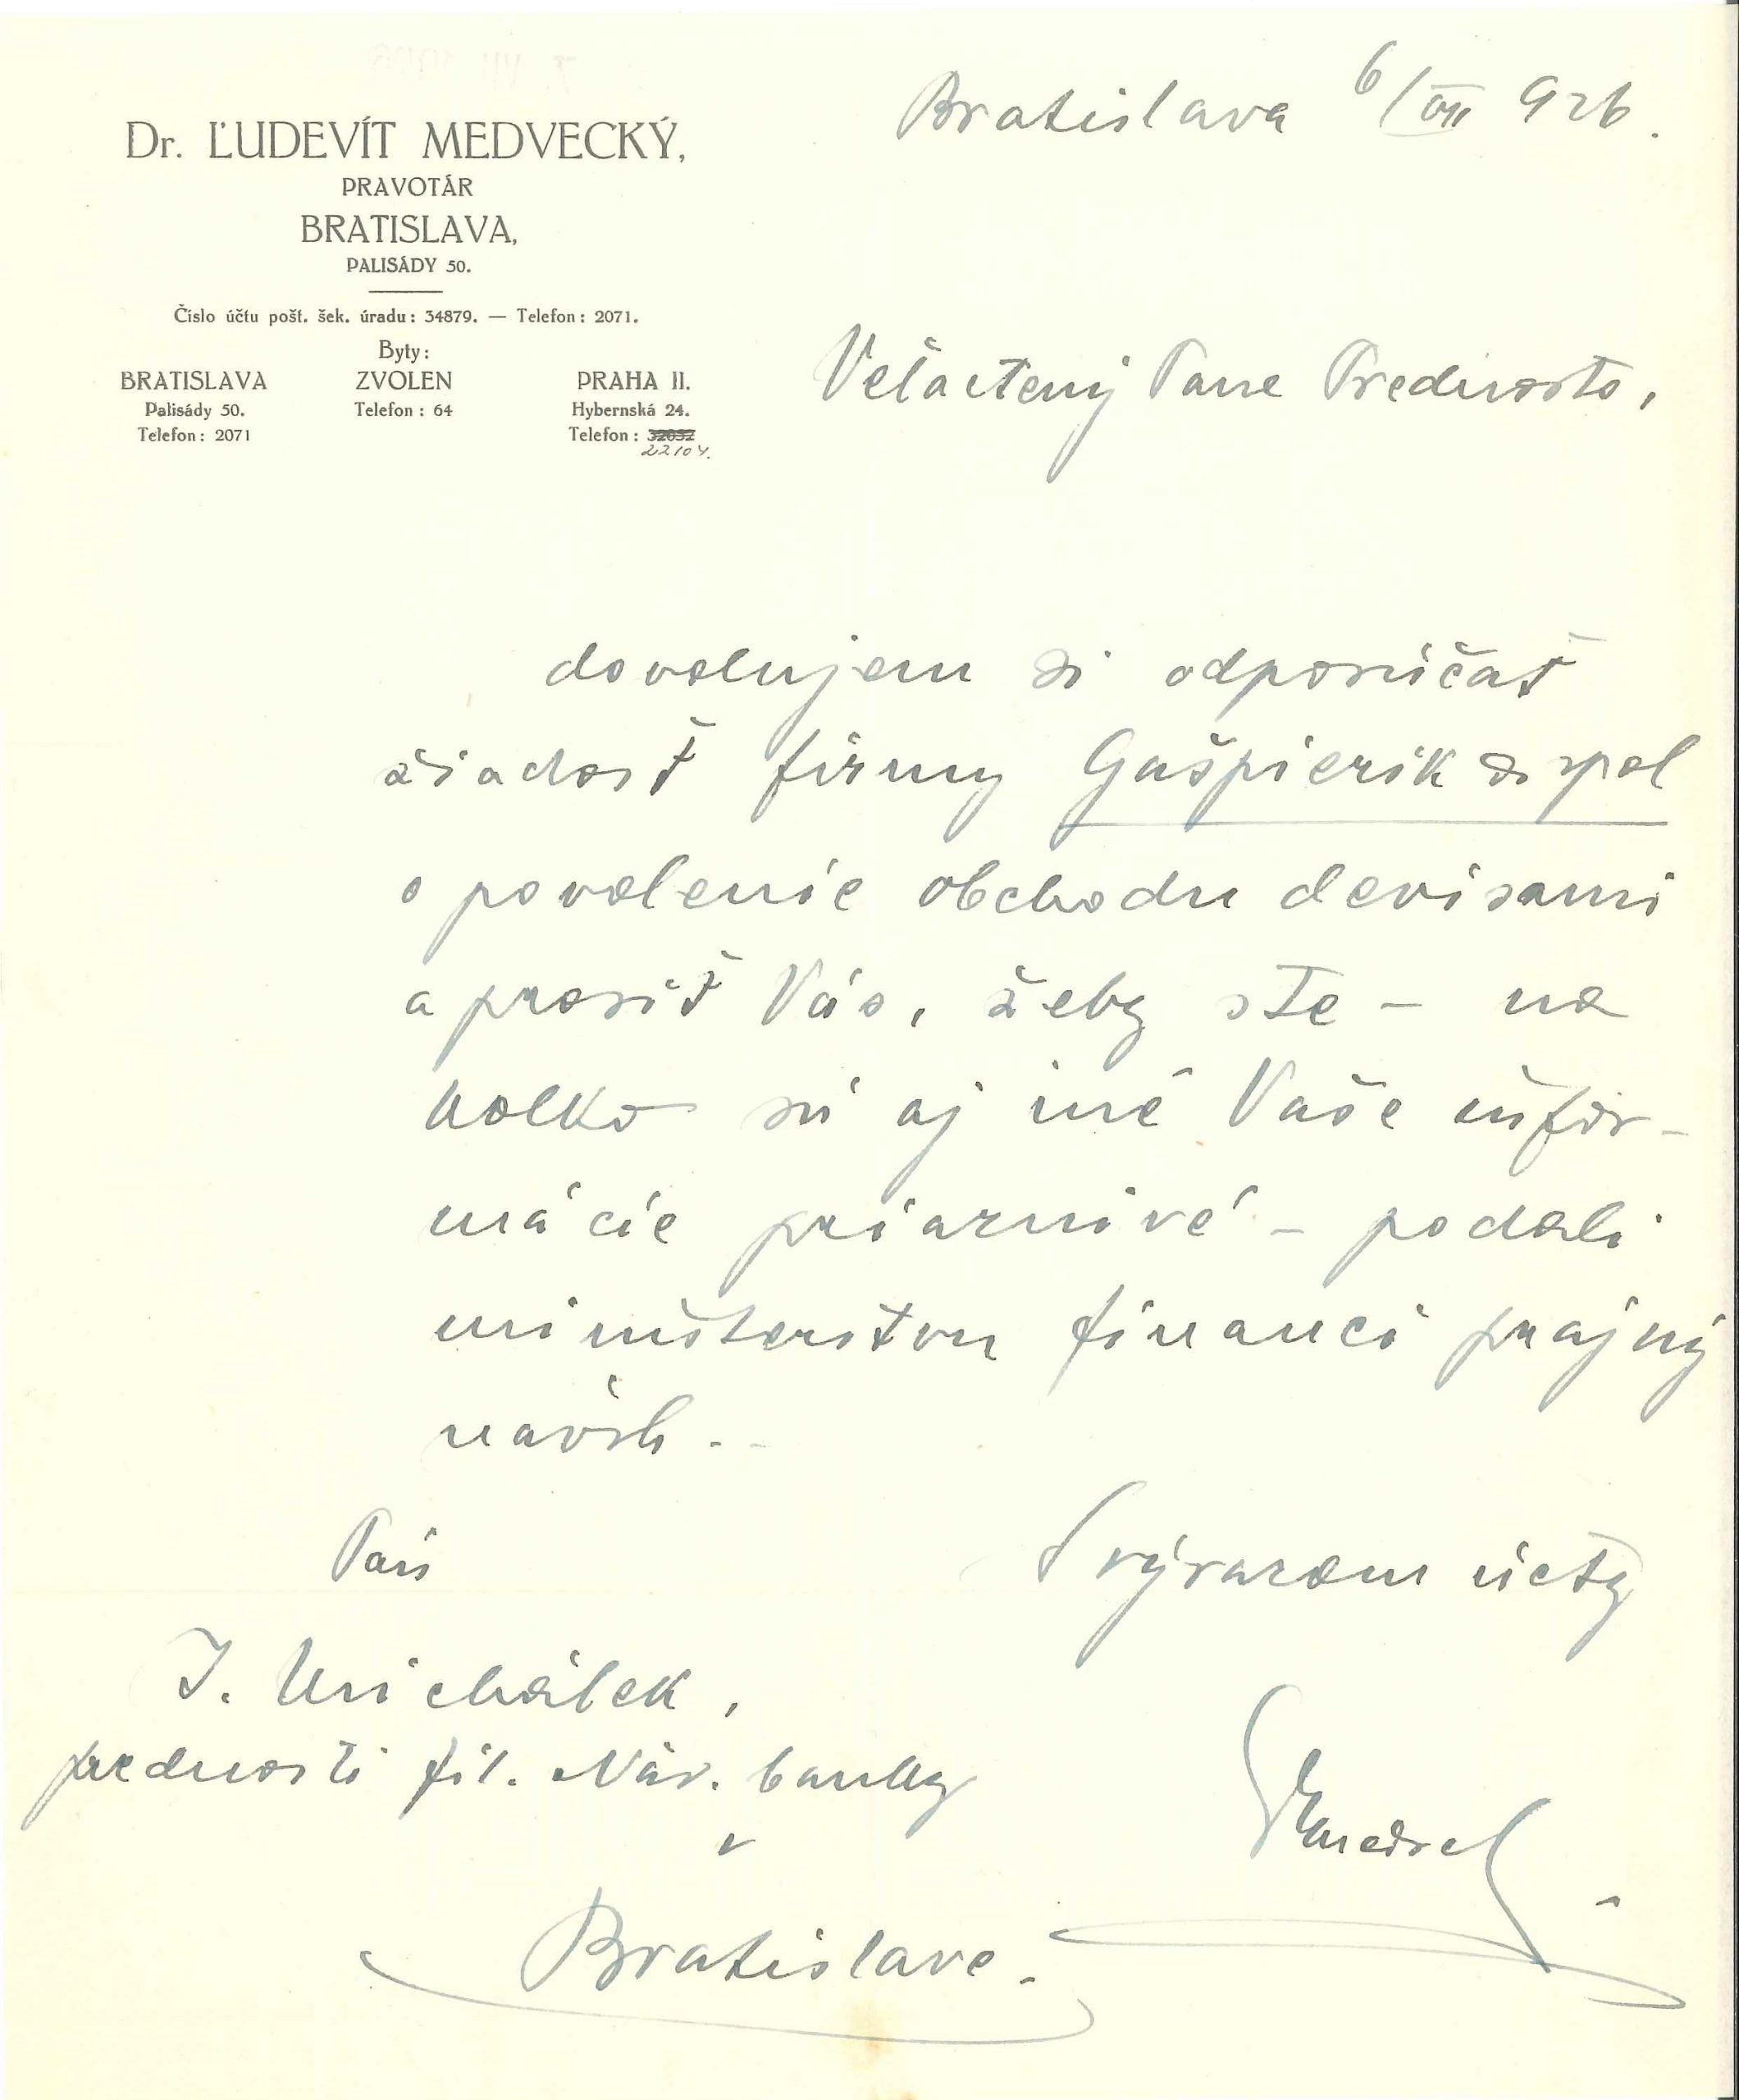 Dr. ĽUDEVÍT MEDVECKÝ,
PRAVOTÁR
BRATISLAVA,
PALISÁDY 50.
Číslo účtu pošt. šek. úradu: 34879. — Telefon: 2071.
Byty:
BRATISLAVA
Palisády 50.
Telefon: 2071
ZVOLEN
Telefon: 64
PRAHA II.
Hybernská 24.
Telefon: 32032
22104.
Bratislava 6/VII 926.
Veľactený Pane Prednosto,
dovolujem si odporúčať
žiadosť firmy Gašpierik a spol
o povolenie obchodu devisami
a prosiť Vás, žeby ste – na
kolko sú aj iné Vaše infor-
mácie priaznivé – podali
ministerstvu financí prajný
návrh.
S výrazom úcty
Pán
J. Michálek,
prednosti fil. Nár. banky
v
Bratislave.